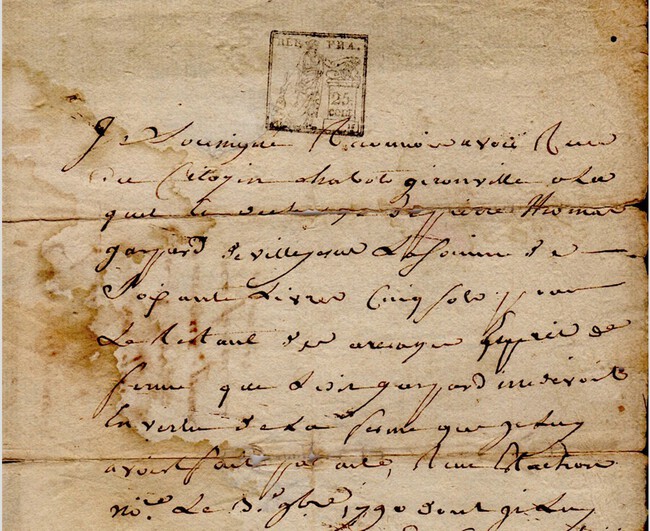 REP. FRA.
25
CEN
Je Soussigné Reconnois avoir Recu
du Citoyin chabot gironville a La
quit et decharge de pierre thomas
gaspard de villejesus La somme de
Soixante Livres Cinq Sols pour
Le Restant des arerages du prix de
ferme que Ledit gaspard me devoit
En vertu de La ferme que je Luy
avois fait par acte, Recu
no.re Le 3.e 9bre 1790 dont je Luy